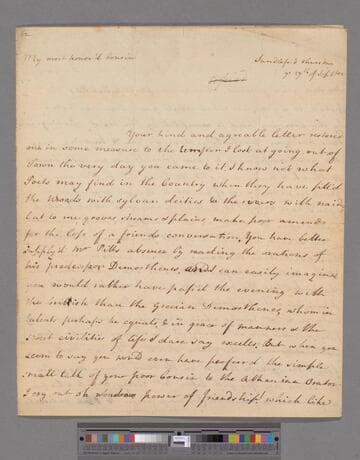 My most honor'd Cousin
Your kind and agreable letter restored
me in some measure to the temper I lost at going out of
Town the very day you came to it. I know not what
Poets may find in the Country when they have fill'd
the woods with sylvan deities & the rivers with naiads
but to me groves streams & plains make poor amends
for the loss of a friends conversation, You have better
supply'd Mr Pitts absence by reading the orations of
his predecessor Demosthenes, and I can easily imagine
you would rather have pass'd the evening with
the British than the Grecian Demosthenes, whom in
talents perhaps he equals, & in grace of manners & the
sweet civilities of life I dare say excells, But when you
seem to say you would even have prefer'd the simple
small talk of your poor Cousin to the Athenian Orator
I cry out oh wondrous power of friendship! which like